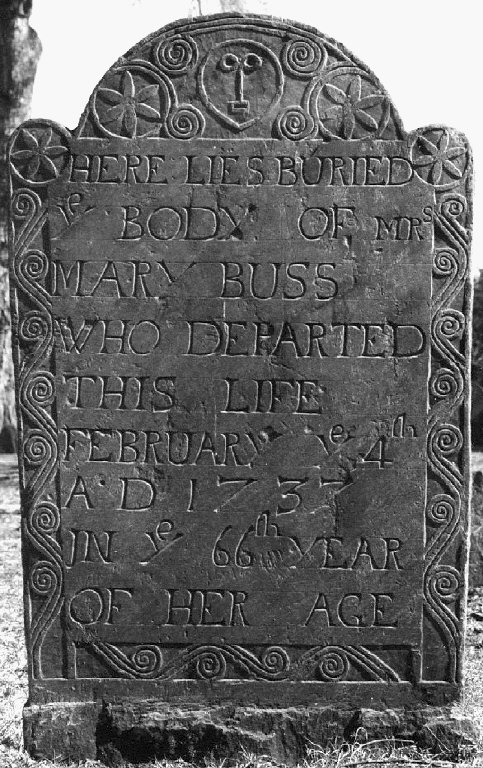 HERE LIES BURIED
yᵉ BODY OF MRˢ
MARY BUSS
WHO DEPARTED
THIS LIFE
FEBRUARY yᵉ 4ᵗʰ
A D 1737
IN yᵉ 66ᵗʰ YEAR
OF HER AGE